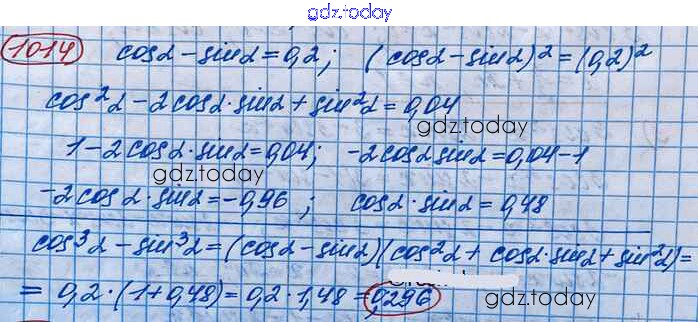 gdz.today
1014 cosα - sinα = 0,2; (cosα - sinα)² = (0,2)²
cos²α - 2cosα·sinα + sin²α = 0,04
gdz.today
1 - 2cosα·sinα = 0,04; -2cosα sinα = 0,04 - 1
gdz.today
-2cosα·sinα = -0,96; cosα·sinα = 0,48
cos³α - sin³α = (cosα - sinα)(cos²α + cosα·sinα + sin²α) =
= 0,2·(1 + 0,48) = 0,2·1,48 = 0,296
gdz.today